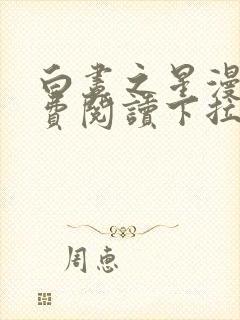 白晝之星漫
費閱讀下拉
周惠